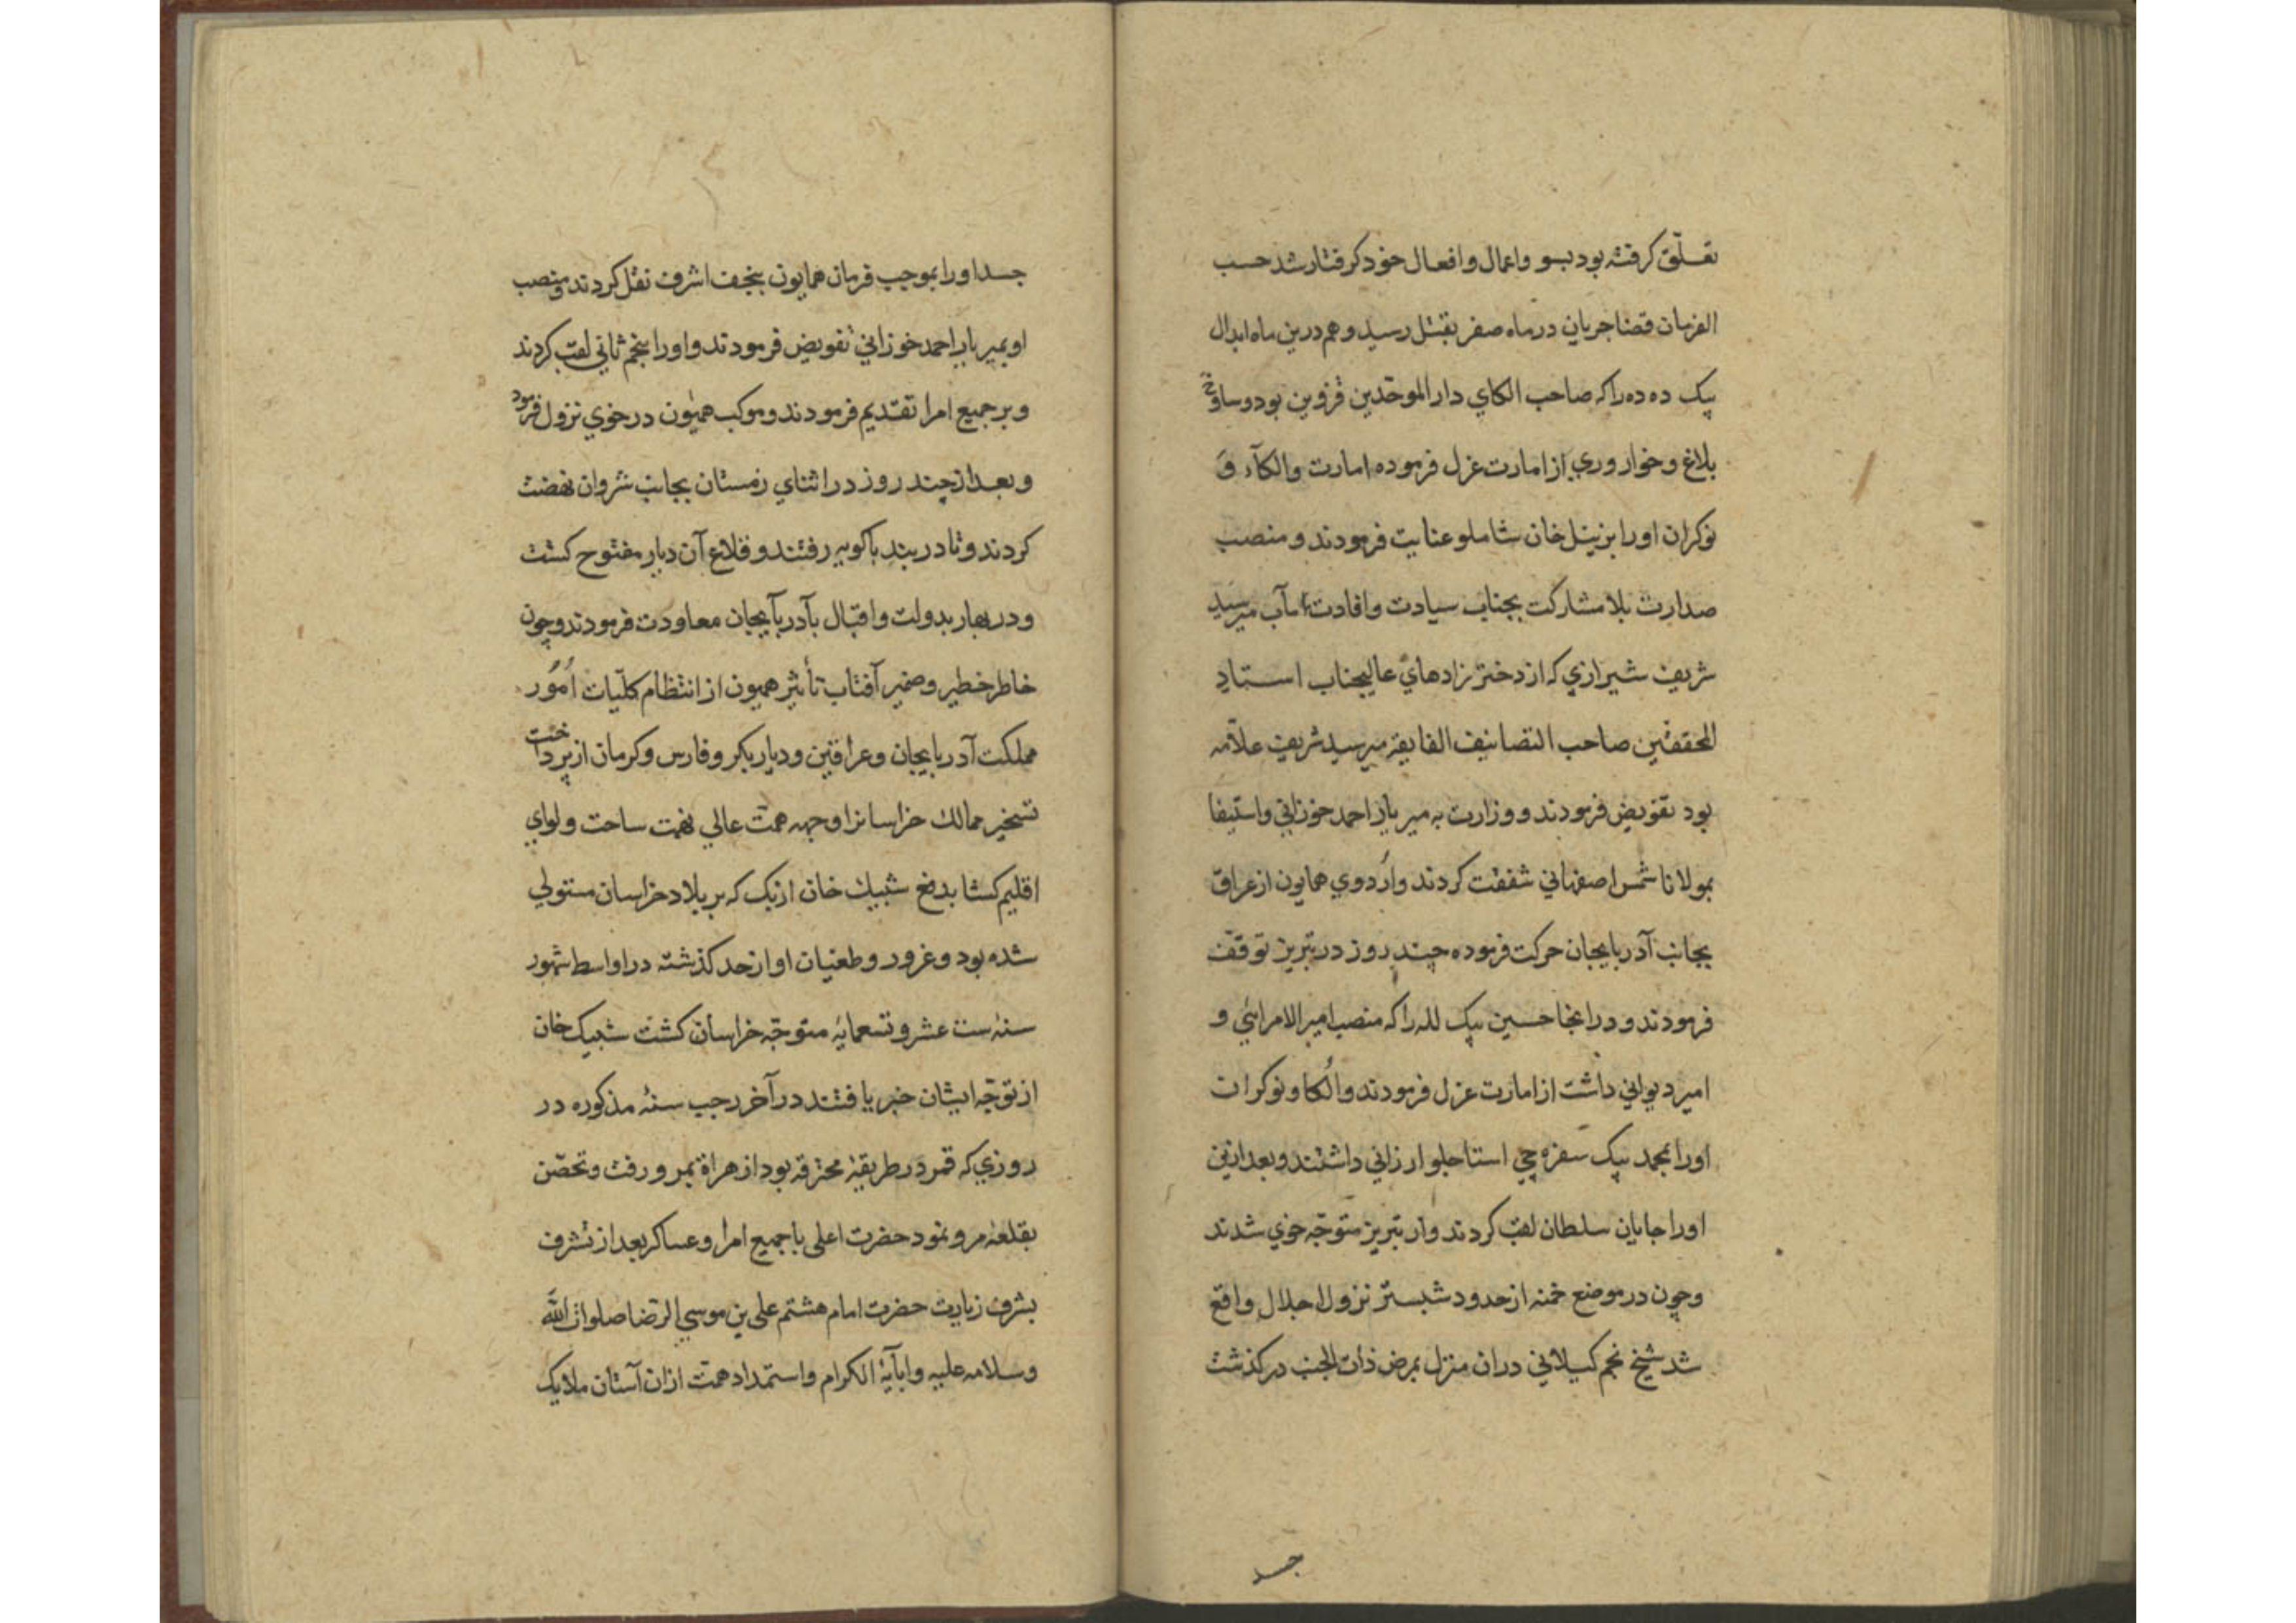 تعلّق کرفته بود بسو واعمال وافعال خود کرفتار شد حسب
الفرمان قضا جریان در ماه صفر بقتل رسید و هم درین ماه ابدال
بیک ده ده را که صاحب الکای دار الموحّدین قزوین بود وساوخ
بلاغ وخوار وری از امارت عزل فرموده امارت والکآء وَ
نوکران اورا بزینل خان شاملو عنایت فرمودند و منصب
صدارت بلا مشارکت بجناب سیادت وافادت مآب میر سید
شریف شیرازی که از دختر نزادهای عالیجناب استاد
المحققین صاحب التصانیف الفایقه میر سید شریف علاّمه
بود تفویض فرمودند و وزارت به میر یار احمد خوزانی واستیفا
بمولانا شمس اصفهانی شفقت کردند واُردوی همایون از عراق
بجانب آذربایجان حرکت فرموده چند روز در تبریز توقّف
فرمودند و در انجا حسین بیک لله را که منصب امیر الامرائی و
امیر دیوانی داشت از امارت عزل فرمودند واُلکا و نوکران
اورا بمحمد بیک سفره چی استاجلو ارزانی داشتند و بعد ازین
اورا جایان سلطان لقب کردند واز تبریز متوجّه خوی شدند
وچون در موضع خمنه از حدود شبستر نزول اجلال واقع
شد شیخ نجم کیلانی دران منزل بمرض ذات الجنب درکذشت
جسد
جسد اورا بموجب فرمان همایون بنجف اشرف نقل کردند ومنصب
او بمیر یار احمد خوزانی تفویض فرمودند واورا بنجم ثانی لقب کردند
وبر جمیع امرا تقدیم فرمودند وموکب همیون در خوی نزول فرمود
وبعد از چند روز در اثنای زمستان بجانب شروان نهضت
کردند وتا دربند باکویه رفتند و قلاع آن دیار مفتوح کشت
ودر بهار بدولت واقبال بآدربآیجان معاودت فرمودند وچون
خاطر خطیر وضمیر آفتاب تأثیر همیون از انتظام کلّیات اُمُور
مملکت آدربایجان وعراقین ودیار بکر وفارس وکرمان ازپرداخت
تسخیر ممالك خراسانرا وجهه همّت عالی نهمت ساخت ولوای
اقلیم کشا بدفع شیبك خان ازبک که بر بلاد خراسان مستولی
شده بود وغرور وطغیان او از حد کذشته در اواسط شهور
سنه ست عشر وتسعمایه متوجّه خراسان کشت شیبیک خان
از توجّه ایشان خبر یافتند در آخر رجب سنهٔ مذکوره در
روزی که قمر در طریقهٔ محترقه بود از هراة بمرو رفت وتحصّن
بقلعهٔ مرو نمود حضرت اعلی با جمیع امرا وعساکر بعد از تشرف
بشرف زیارت حضرت امام هشتم علی بن موسی الرّضا صلوات اللّه
وسلامه علیه وابآیهٔ الکرام واستمداد همّت ازان آستان ملایک